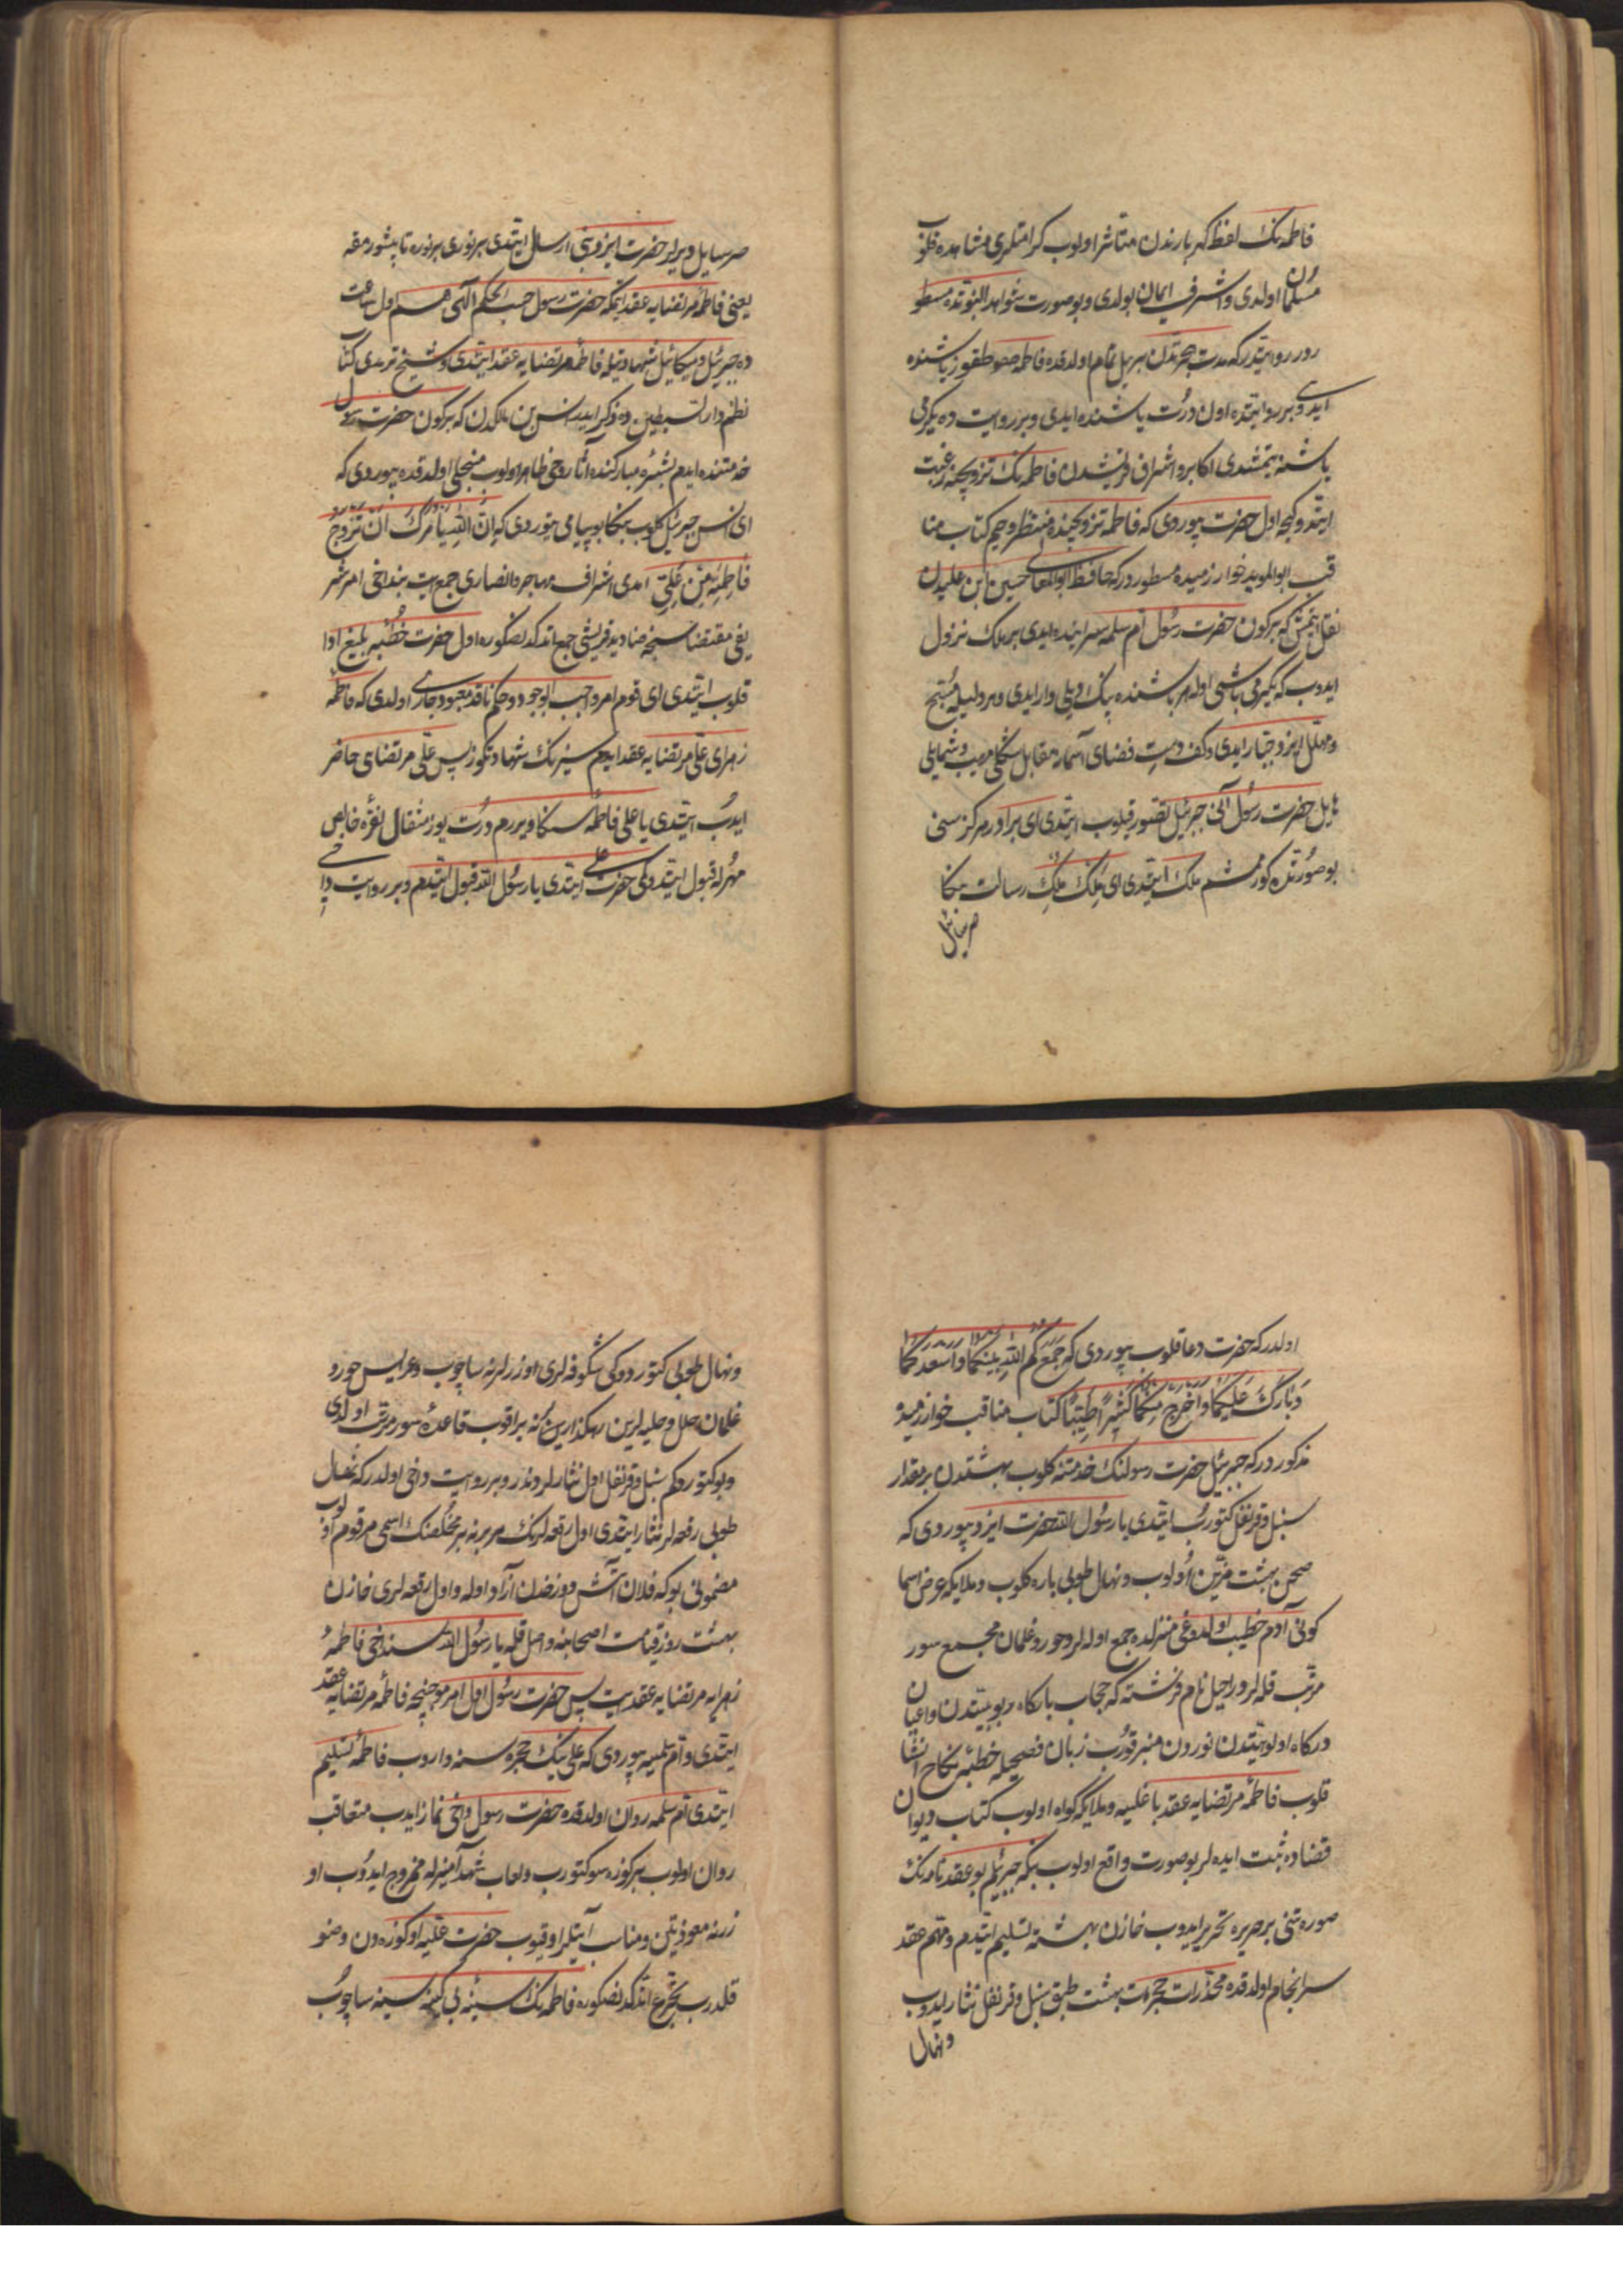 فاطمه‌نك لفظ كهربارندن متأثر اولوب كرامتلرى مشاهده قلوب
مسلمان اولدى واشرف ايمان بولدى وبو صورت شواهد النبوتده مسطو
روايتدر كه مدت هجرتدن بر ييل تمام اولدقده فاطمه طقوز ياشنده
ايدى وبر روايتده اون درت ياشنده ايدى وبر روايت ده يكرمى
ياشنه يتمشدى اكابر واشراف قريشدن فاطمه‌نك تزويجنه رغبت
ايتدوكجه اول حضرت بيوردى كه فاطمه تزويجنده منتظر وحيم كتاب منا
قب ابو المويد خوارزميده مسطوردر كه حافظ ابو المعالى حسين ابن عليدن
نقل ايتمش كه بر كون حضرت رسول ام سلمه سراينده ايدى بر ملك نزول
ايدوب كه يكرمى باشى اوله هر باشنده بيك ديلى وار ايدى وهر ديليله مسبح
ومهلل ايزد جبار ايدى وكف دست فضاى آسمانه مقابل شكلى مهيب وشمايلى
هايل حضرت رسول آنى جبرئيل تصور قلوب ايتدى اى برادر هركز سنى
بو صورتده كورمشم ملك ايتدى اى ملك ملك رسالت بكا
صرصايل
صرصايل ديرلر حضرت ايزد بنى ارسال ايتدى بر نورى بر نوره تا پيشورمقه
يعنى فاطمه مرتضايه عقد ايتمكه حضرت رسول حسب الحكم الهى هم اول ساعت
ده جبرئيل وميكائيل شهادتيله فاطمه مرتضايه عقد ايتدى وشيخ ترمدى كتاب
نظم دار السبطين ده ذكر ايدر انس بن مالكدن كه بر كون حضرت رسول
خدمتنده ايدم بشره مباركنده آثار وحى ظاهر اولوب منجلى اولدقده بيوردى كه
اى انس جبرئيل كلوب بنكا بو پيامى يتوردى كه ان الله يأمرك ان تزوج
فاطمة من على امدى اشراف مهاجر وانصارى جمعيت بنداخى امر شر
يفى مقتضاسنجه صناديد قريشى جمع اتدكدنصكره اول حضرت خطبه بليغ ادا
قلوب ايتدى اى قوم امر واجب الوجود وحكم نافذ معبود جارى اولدى كه فاطمه
زهراى على مرتضايه عقد ايدم سيزنك شهادتكوزله پس على مرتضاى حاضر
ايدوب ايتدى يا على فاطمه سكا ويررم درت يوز مثقال نقره خالص
مهرله قبول ايتدوكى حضرت على ايتدى يا رسول الله قبول ايتدم وبر روايت داخى
اولدر كه حضرت دعا قلوب بيوردى كه جمع كم الله بينكما واسعد كما
وبارك عليكما واخرج منكما كثيرا طيبا كتاب مناقب خوارزميده
مذكوردر كه جبرئيل حضرت رسولنك خدمتنه كلوب بهشتدن بر مقدار
سنبل وقرنفل كتورب ايتدى يا رسول الله حضرت ايزد بيوردى كه
صحن بهشت مزين اولوب ونهال طوبى باره كلوب وملايكه عرض اسما
كونى آدم خطيب اولدوغى منزلده جمع اوله‌لر وحور وغلمان مجمع سور
مرتب قله‌لر وراحيل نام فرشته كه حجاب باركاه ربوبيتدن واعيان
دركاه الوهيتدن نوردن منبر قورب زبان فصيحله خطبه نكاح انشا
قلوب فاطمه مرتضايه عقد باغليه وملايكه كواه اولوب كتاب ديوان
قضاده ثبت ايده‌لر بو صورت واقع اولوب بنكه جبرئيلم بو عقدنامه‌نك
صورتنى بر حريره تحرير ايدوب خازن بهشته تسليم ايتدم ومهم عقد
سرانجام اولدقده مخدرات حجرات بهشت طبق سنبل وقرنفل نثار ايدوب
ونهال
ونهال طوبى كتوردوكى شكوفه‌لرى اوزرلرنه ساچوب وعرايس حور و
غلمان حلل وحليه‌لرين رهكذارلرينه براقوب قاعده سور مرتب اولدى
وبو كتوردوكم سنبل وقرنفل اول نثارلردندر وبر روايت داخى اولدر كه نهال
طوبى رقعه‌لر نثار ايتدى اول رقعه‌لرنك هر برنه بر مخلصنك اسمى مرقوم اولوب
مضمونى بو كه فلان آتش دوزخدن آزاد اوله واول رقعه‌لرى خازن
بهشت روز قيامت اصحابنه واصل قله يا رسول الله سنداخى فاطمه
زهرايه مرتضايه عقد ايت پس حضرت رسول اول امر موجبنجه فاطمه مرتضايه عقد
ايتدى وام سلميه بيوردى كه على‌نيك حجره سنه واروب فاطمه تسليم
ايتدى ام سلمه روان اولدقده حضرت رسول داخى نماز ايدب متعاقب
روان اولوب بر كوزه سو كتورب ولعاب شهدآميزله ممزوج ايدوب او
زرنه معوذتين ومناسب آيتلر اوقيوب حضرت عليه او كوزه دن وضو
قلدرب تجرع اتدكدنصكوره فاطمه‌نك سينه بى كينه سينه ساچوب